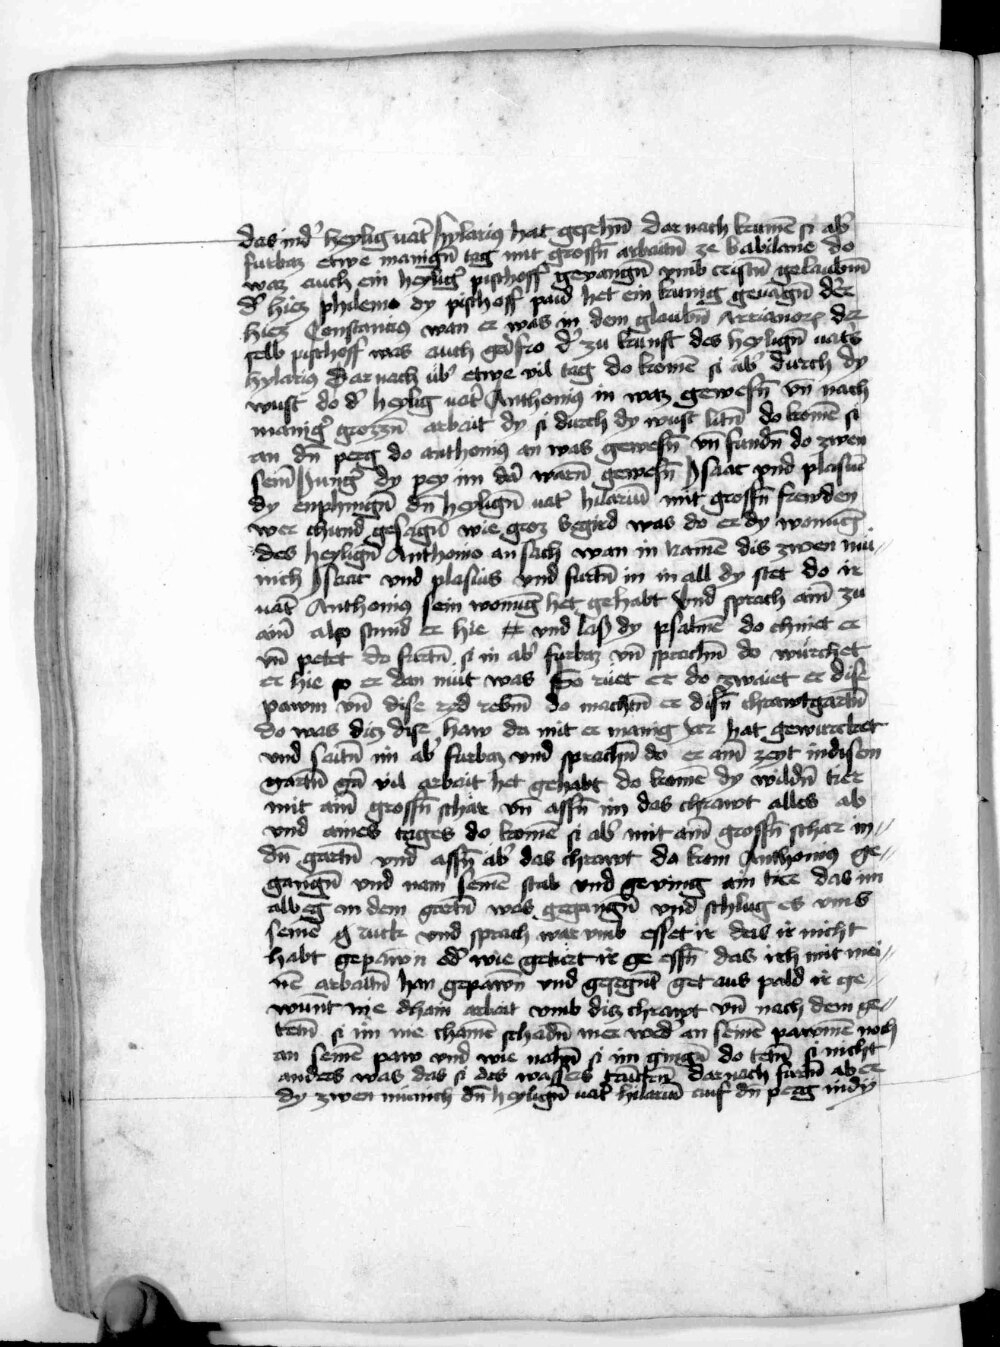 das ind' heylig vat' hylarius hat gesehn̄ dar nach kamē si ab'
furbaz etwe manign̄ tag mit grossn̄ arbaitn̄ ze babilanie do
waz auch ein heylig' pischoff gevangn̄ vmb cristn̄ gelaubm̄
d' hiez philemo dy pischoff paid het ein kunig gevāgn̄ der
hiez Constancius wan er was in dem glaubn̄ Arrianor' der
selb pischoff was auch gar fro d' zu kunft des heylign̄ vat's
hylarius Dar nach üb' etwe vil tag do komē si ab' durch dy
wust do d' heylig vat' Anthonius in waz gewesn̄ vn̄ nach
manig' grozzn̄ arbait dy si durch dy wust litn̄ do komē si
an dn̄ perg do anthonius an was gewesn̄ vn̄ fundn̄ do zwen
sein̄ Jung' dy pey im da warn̄ gewesn̄ ysaac vnd plasiū
dy enphingn̄ dn̄ heylign̄ vat' hilariū mit grossn̄ frewden
wer chund gesagn̄ wie groz begird was do er dy wonūg
des heylign̄ Anthonio an sach wan in namē dis zwen mü//
nich ysaac vnd plasius vnd furtn̄ in in all dy stet do ir
vat' Anthonius sein wonūg het gehabt vnd sprach ain̄ zu
aim̄ also stund er hie vnd las dy psalmē do chniet er
vn̄ petet do furtn̄ si in ab' furbaz vn̄ sprachn̄ do wurchet
er hie so er dan müt was So ruet er do zwaiet er dise
pawm vn̄ dise rebm̄ do machtn̄ er disn̄ chrawtgartn̄
do was diz dise haw da mit er manig iar hat gewurcket
vnd saitn̄ im ab' furbaz vnd sprachn̄ do er ain̄ zeyt in disem
gartn̄ gar vil arbait het gehabt do komē dy wildn̄ tier
mit ain̄ grossn̄ schar vn̄ assn̄ im das chrawt alles ab
vnd aines tages do komē si ab' mit ain̄ grossn̄ schar in//
dn̄ gartn̄ vnd assn̄ ab' das chrawt da kom Anthonius ge//
gangn̄ vnd nam seinē stab vnd geving ain tier das im
allweg in dem gartn̄ was gegangn̄ vnd schlug es vmb
seinē ruck vnd sprach war vmb esset ir das ir nicht
habt gepawn od' wie getürt ir ge essn̄ das ich mit mei//
nē arbaitn̄ han gepawn̄ vnd gesegnt get aus pald ir ge//
wunt nie chain arbait vmb diz chrawt vn̄ nach dem ge//
tetn̄ si im nie chainē schadn̄ mer wed' an seinē pawmē noch
an seinē paw vnd wie nahn̄ si im gingn̄ do tetn̄ si nicht
anders was das si des wassers trūckn̄ dar nach furtn̄ aber
dy zwen munich dn̄ heylign̄ vat' hilariū auf dn̄ perg in dy